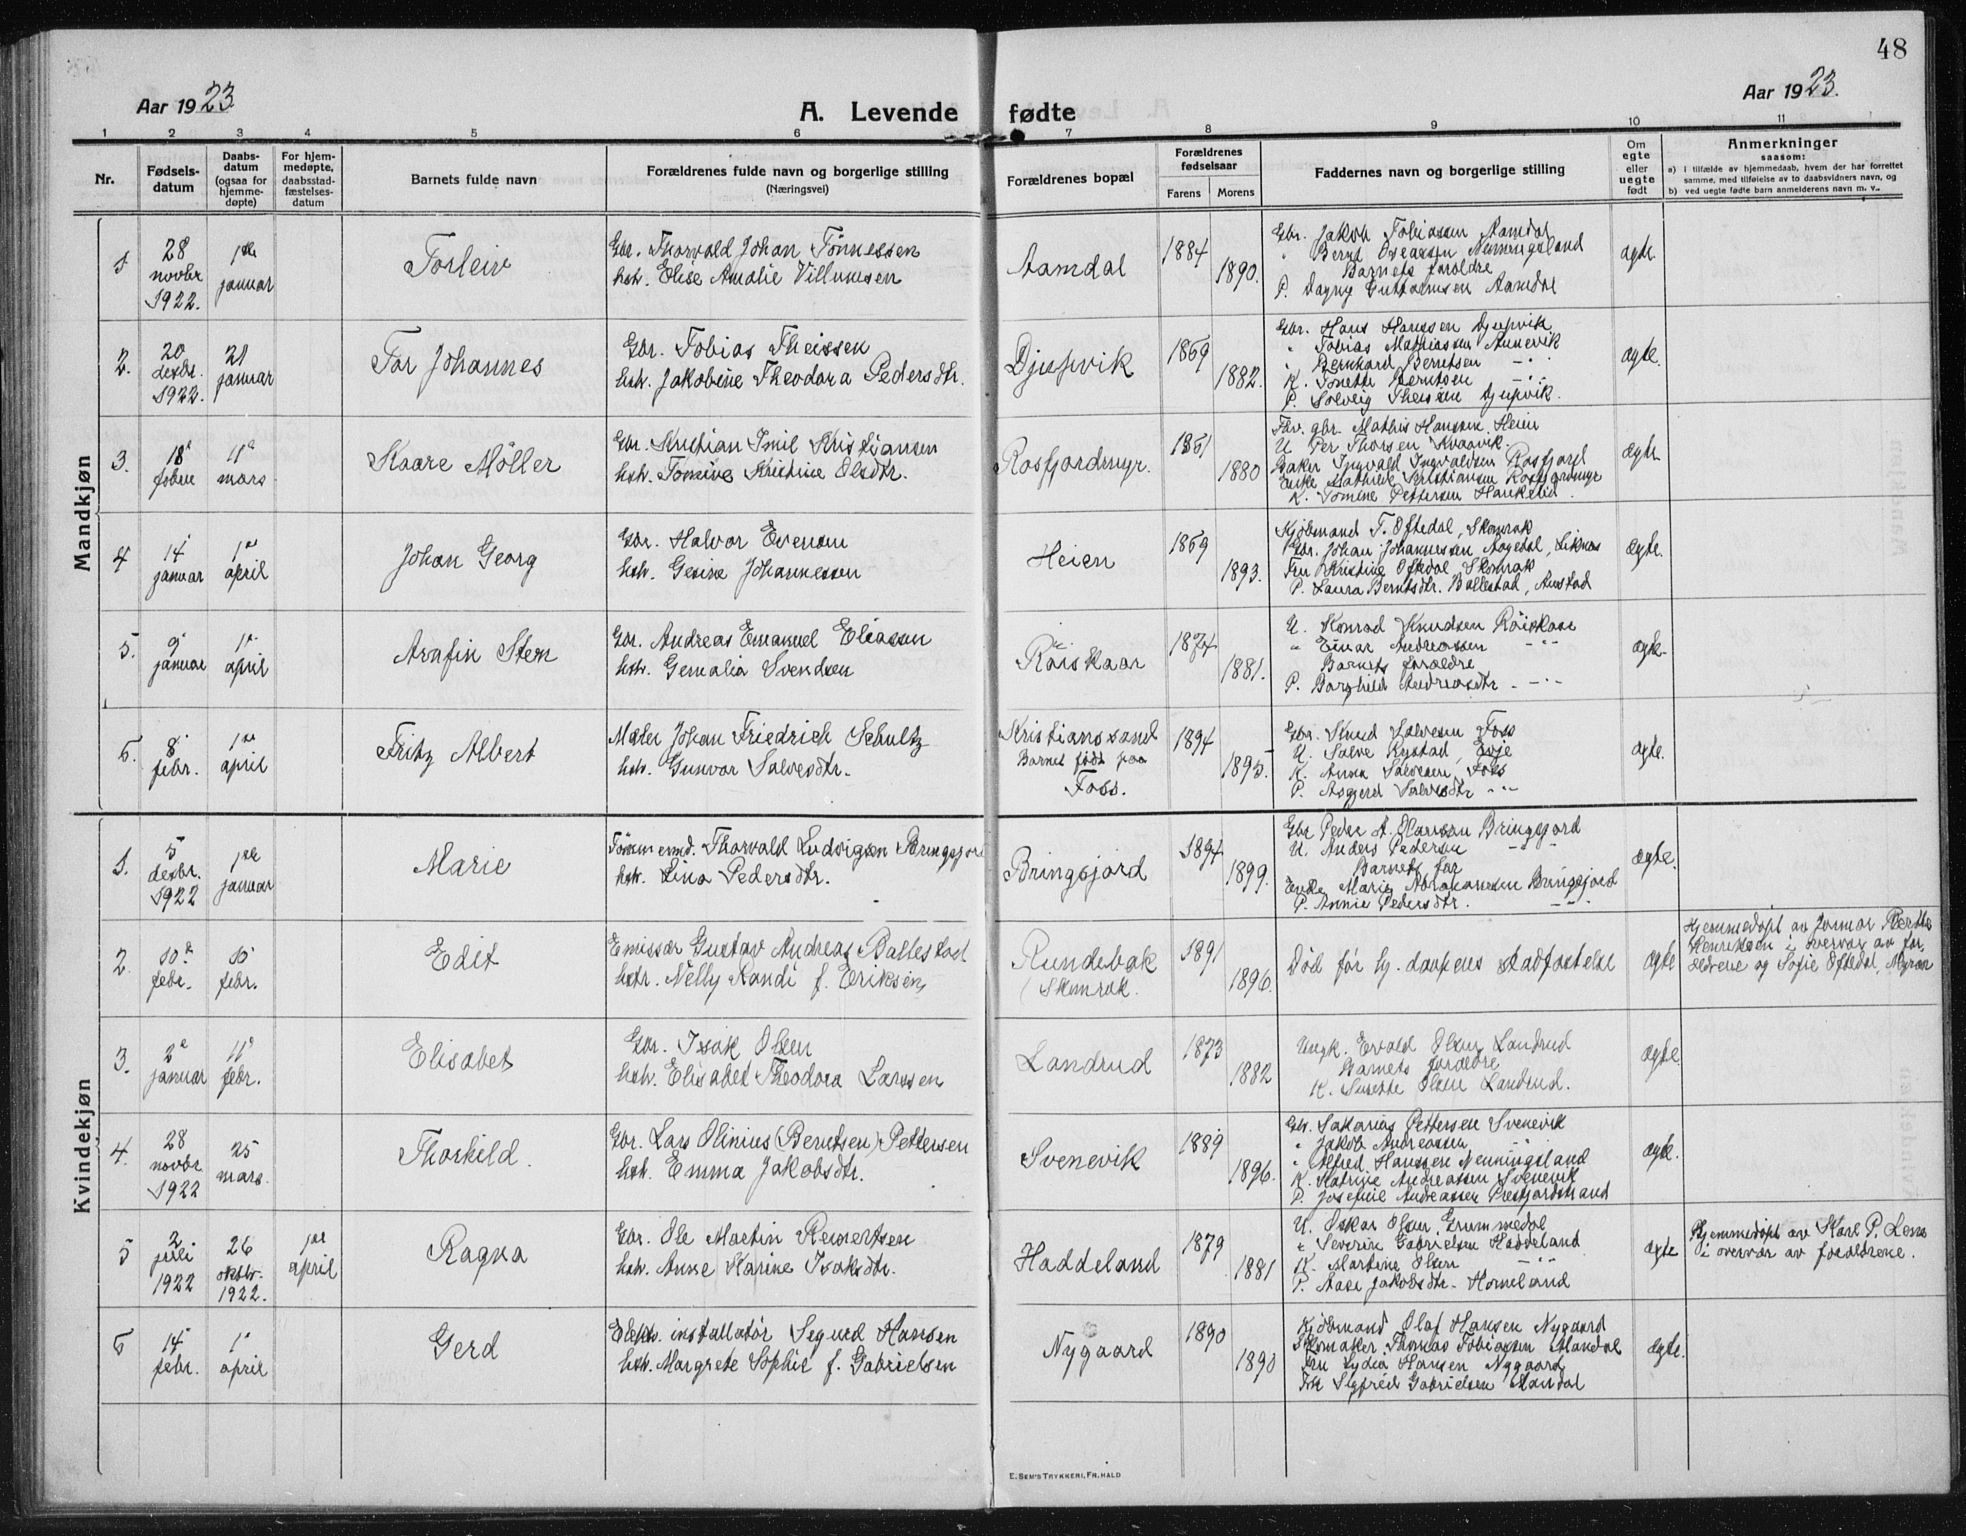 48
Aar 1923
A. Levende fødte
Aar 1923.
1 2 3 4 5 6 7 8 9 10 11
Nr.
Fødsels-
datum
Daabs-
datum
(ogsaa for
hjemme-
døpte)
For hjem-
medøpte,
daabsstad-
fæstelses-
datum
Barnets fulde navn
Forældrenes fulde navn og borgerlige stilling
(Næringsvei)
Forældrenes bopæl
Forældrenes
fødselsaar
Farens Morens
Faddernes navn og borgerlige stilling
Om
egte
eller
uegte
født
Anmerkninger
saasom:
a) i tilfælde av hjemmedaab, hvem der har forrettet
samme, med tilføielse av to daabsvidners navn, og
b) ved uegte fødte barn anmelderens navn m. v..
Mandkjøn
1.
28
novbr
1922.
1ste
januar
Torleiv
Gbr. Thorvald Johan Tönnessen
hstr. Elise Amalie Villumsen
Aamdal
1884
1890.
Gbr. Jakob Tobiassen Aamdal
" Bernt Oveassen Nenningsland
Barnets foreldre
P. Dagny Guttormsen Aamdal
ægte
2.
20
dexbr.
1922.
21
januar
Tor Johannes
Gbr. Tobias Theissen
hstr. Jakobine Theodora Pedersdtr.
Djupvik
1869
1882.
Gbr. Hans Hanssen Djupvik
" Tobias Mathiassen Aunevik
" Bernhard Berntsen -"-
K. Tonette Berntsen -"-
P. Solveig Theissen Djupvik.
ægte.
3.
18de
febru
11te
mars
Kaare Möller
Gbr. Kristian Emil Kristiansen
hstr. Tomine Kristine Olsdtr.
Rosfjordmyr.
1881
1880
Fhv. gbr. Mathis Hanssen Heien
U. Per Thorsen Kvaavik.
Baker Ingvald Ingvaldsen Rosfjord
Enke Mathilde Kristiansen Rosfjordmyr
K. Tomine Pettersen Haukelid.
ægte
4
14
januar
1ste
april
Johan Georg
Gbr. Halvor Evensen
hstr. Gesine Johannessen
Heien
1869
1893.
Kjøbmand T. Oftedal, Skomrak
Gbr. Johan Johannessen Aagedal, Liknes
Fru Kristine Oftedal, Skomrak
P. Laura Berntsdtr. Ballestad, Austad
ægte.
5.
9
januar
1ste
april
Arafin Sten
Gbr. Andreas Emanuel Eliassen
hstr. Gemalia Svendsen
Röiskaar
1874
1881.
U. Konrad Knudsen Röiskaar
" Einar Andreassen -"-
Barnets forældre
P. Borghild Andreasdtr. -"-
ægte.
6.
8
febr.
1ste
april
Fritz Albert
Maler Johan Friedrich Schultz
hstr. Gunvor Salvesdtr.
Kristianssand
Barnet født paa
Foss.
1894
1895.
Gbr. Knud Salvesen Foss
U. Salve Rystad, Evje
K. Anna Salvesen, Foss
P. Asgjerd Salvesdtr -"-
ægte.
Kvindekjøn
1.
5
dexbr.
1922
1ste
januar
Marie
Tömmermd. Thorvald Ludvigsen Bringsjord
hstr. Lina Pedersdtr.
Bringsjord
1894
1899.
Gbr Peder A. Olavsen Bringsjord
U. Anders Pedersen -"-
Barnets far
Enke Marie Abrahamsen Bringsjord
P. Annie Pedersdtr. -"-
ægte.
2.
10de
febr.
10
febr.
Edit
Emissær Gustav Andreas Ballestad
hstr. Nelly Randi f. Eriksen
Rundebak
Skomrak.
1891
1896.
Død før hj. daapens stadfæstelse
ægte
Hjemmedøpt av Jormor Berthe
Henriksen i overvær av for,
ældrene og Sofie Oftedal, Myran
3.
2de
januar
11te
febr.
Elisabet
Gbr. Isak Olsen
hstr. Elisabet Theodora Larssen
Landrud
1873
1882
Ungk. Evald Olsen Landrud
Barnets foreldre
K. Susette Olsen Landrud.
ægte
4.
28
novbr.
1922
25
mars
Thorhild.
Gbr. Lars Olinius (Berntsen) Pettersen
hstr. Emma Jakobsdtr.
Svenevik
1889
1896.
Gbr. Sakarias Pettersen Svenevik
" Jakob Andreassen -"-
" Alfred Hanssen Nenningsland
K. Katrine Andreassen Svenevik
P. Josefine Andreassen Presfjordstrand
ægte.
5
2
juli
1922
26
oktbr.
1922.
1ste
april
Ragna
Gbr. Ole Martin Reinertsen
hstr. Anne Karine Isaksdtr.
Haddeland
1879
1881
U. Oskar Olsen Grummedal
" Severin Gabrielsen Haddeland
K. Martine Olsen -"-
P. Aase Jakobsdtr. Homeland
ægte
Hjemmedøpt av Karl P. Lene
i overvær av forældrene.
6
14
febr.
1
april
Gerd
Elektr. installatör Sigurd Hansen
hstr. Margrete Sophie f. Gabrielsen
Nygaard
1890
1890
Kjöbmand Olaf Hansen Nygaard
Skomaker Thomas Tobiassen Mandal
Fru Lydia Hansen Nygaard
Frk Sigfrid Gabrielsen Mandal
ægte.
E. SEM'S TRYKKERI, FR.HALD